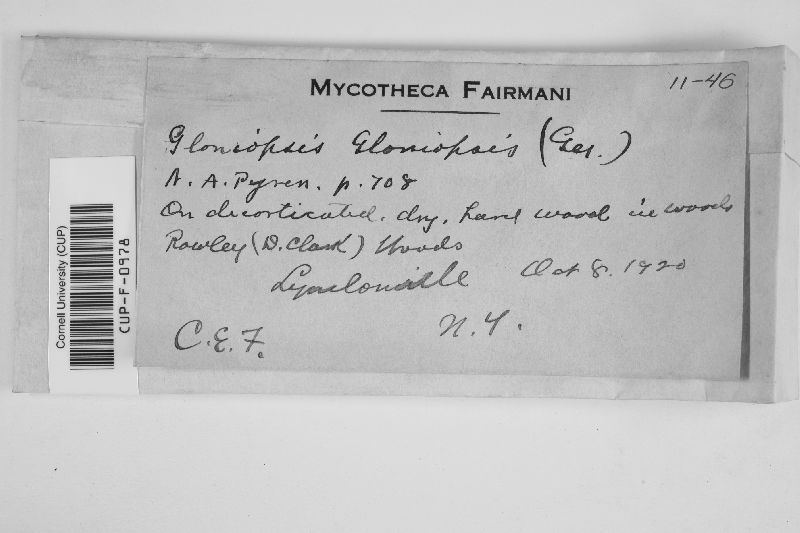 MYCOTHECA FAIRMANI
11-46
Gloniopsis Gloniopsis (Ger.)
N. A. Pyren. p. 708
On decorticated, dry, hard wood in woods
Rowley (D. Clark) Woods
Lyndonville Oct 8. 1920
N. Y.
C. E. F.
Cornell University (CUP)
CUP-F-0978